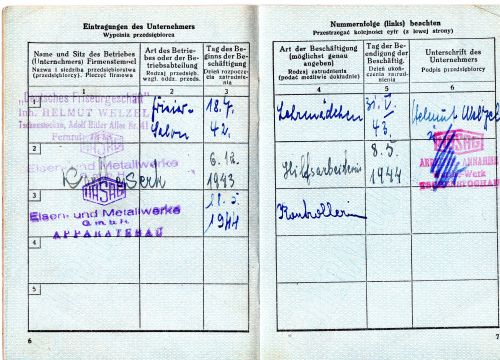 Eintragungen des Unternehmers
Wypełnia przedsiębiorca
Name und Sitz des Betriebes
(Unternehmers) Firmenstempel
Nazwa i siedziba przedsiębiorstwa
(przedsiębiorcy). Pieczęć firmowa
Art des Betrie-
bes oder der
Betriebsabteilung
Rodzaj przedsięb.
wzgl. oddz. przeds.
Tag des
Beginns der
Beschäftigung
Dzień rozpoczę-
cia zatrudnienia
1
2
3
1
"Deutsches Friseurgeschäft"
Inh. HELMUT WELZEL
Tschenstochau, Adolf Hitler Allee Nr. 41
Fernruf
Frisier-
Salon
18.4.
42.
2
HASAG
Eisen- und Metallwerke
6.12.
1943
3
HASAG
Eisen- und Metallwerke
G.m.b.H.
APPARATEBAU
1944
4
5
6
Nummernfolge (links) beachten
Przestrzegać kolejności cyfr (z lewej strony)
Art der Beschäftigung
(möglichst genau
angeben)
Rodzaj zatrudnienia
(podać możliwie dokładnie)
Tag der
Beendigung
der
Beschäftig.
Dzień ukoń-
czenia zatrud-
nienia
Unterschrift des
Unternehmers
Podpis przedsiębiorcy
4
5
6
Lehrmädchen
31. V.
43.
Helmut Welzel
Hilfsarbeiterin
8.5.
1944
HASAG
TSCHENSTOCHAU
Kontrollerin
7